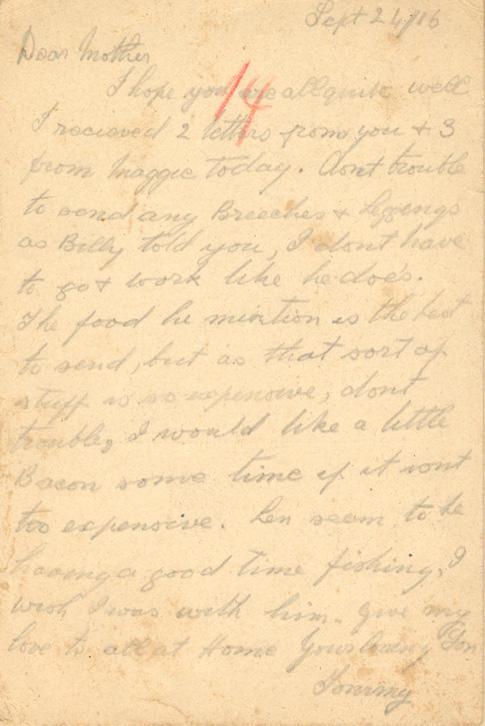 Sept 24/16
Dear Mother
14
I hope you are all quite well
I recieved 2 letters from you + 3
from Maggie today. Dont trouble
to send any Breeches + Leggings
as Billy told you, I dont have
to go + work like he does.
The food he mintion is the best
to send, but as that sort of
stuff is so expensive, dont
trouble, I would like a little
Bacon some time if it isnt
too expensive. Len seem to be
having a good time fishing, I
wish I was with him. Give my
love to all at Home Your loving Son
Tommy